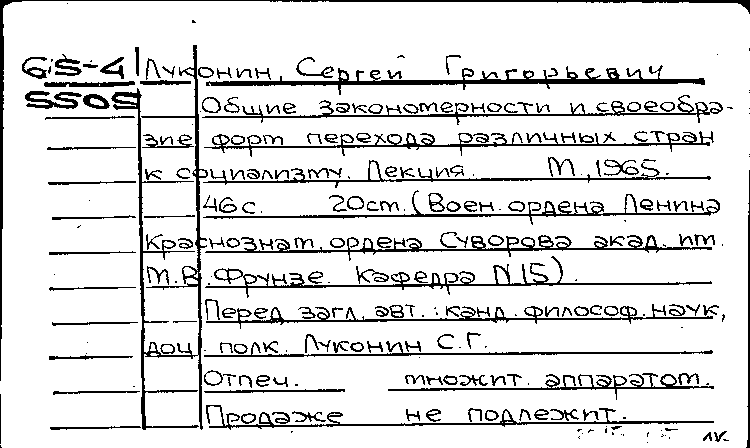 Б5-4 Луконин, Сергей Григорьевич
5505 Общие закономерности и своеобра-
зие форм перехода различных стран
к социализму. Лекция. М., 1965.
46с. 20см. (Воен. ордена Ленина
Краснознам. ордена Суворова акад. им.
М.В. Фрунзе. Кафедра N 15).
Перед загл. авт.: канд. философ. наук,
доц. полк. Луконин С.Г.
Отпеч. множит. аппаратом.
Продаже не подлежит.